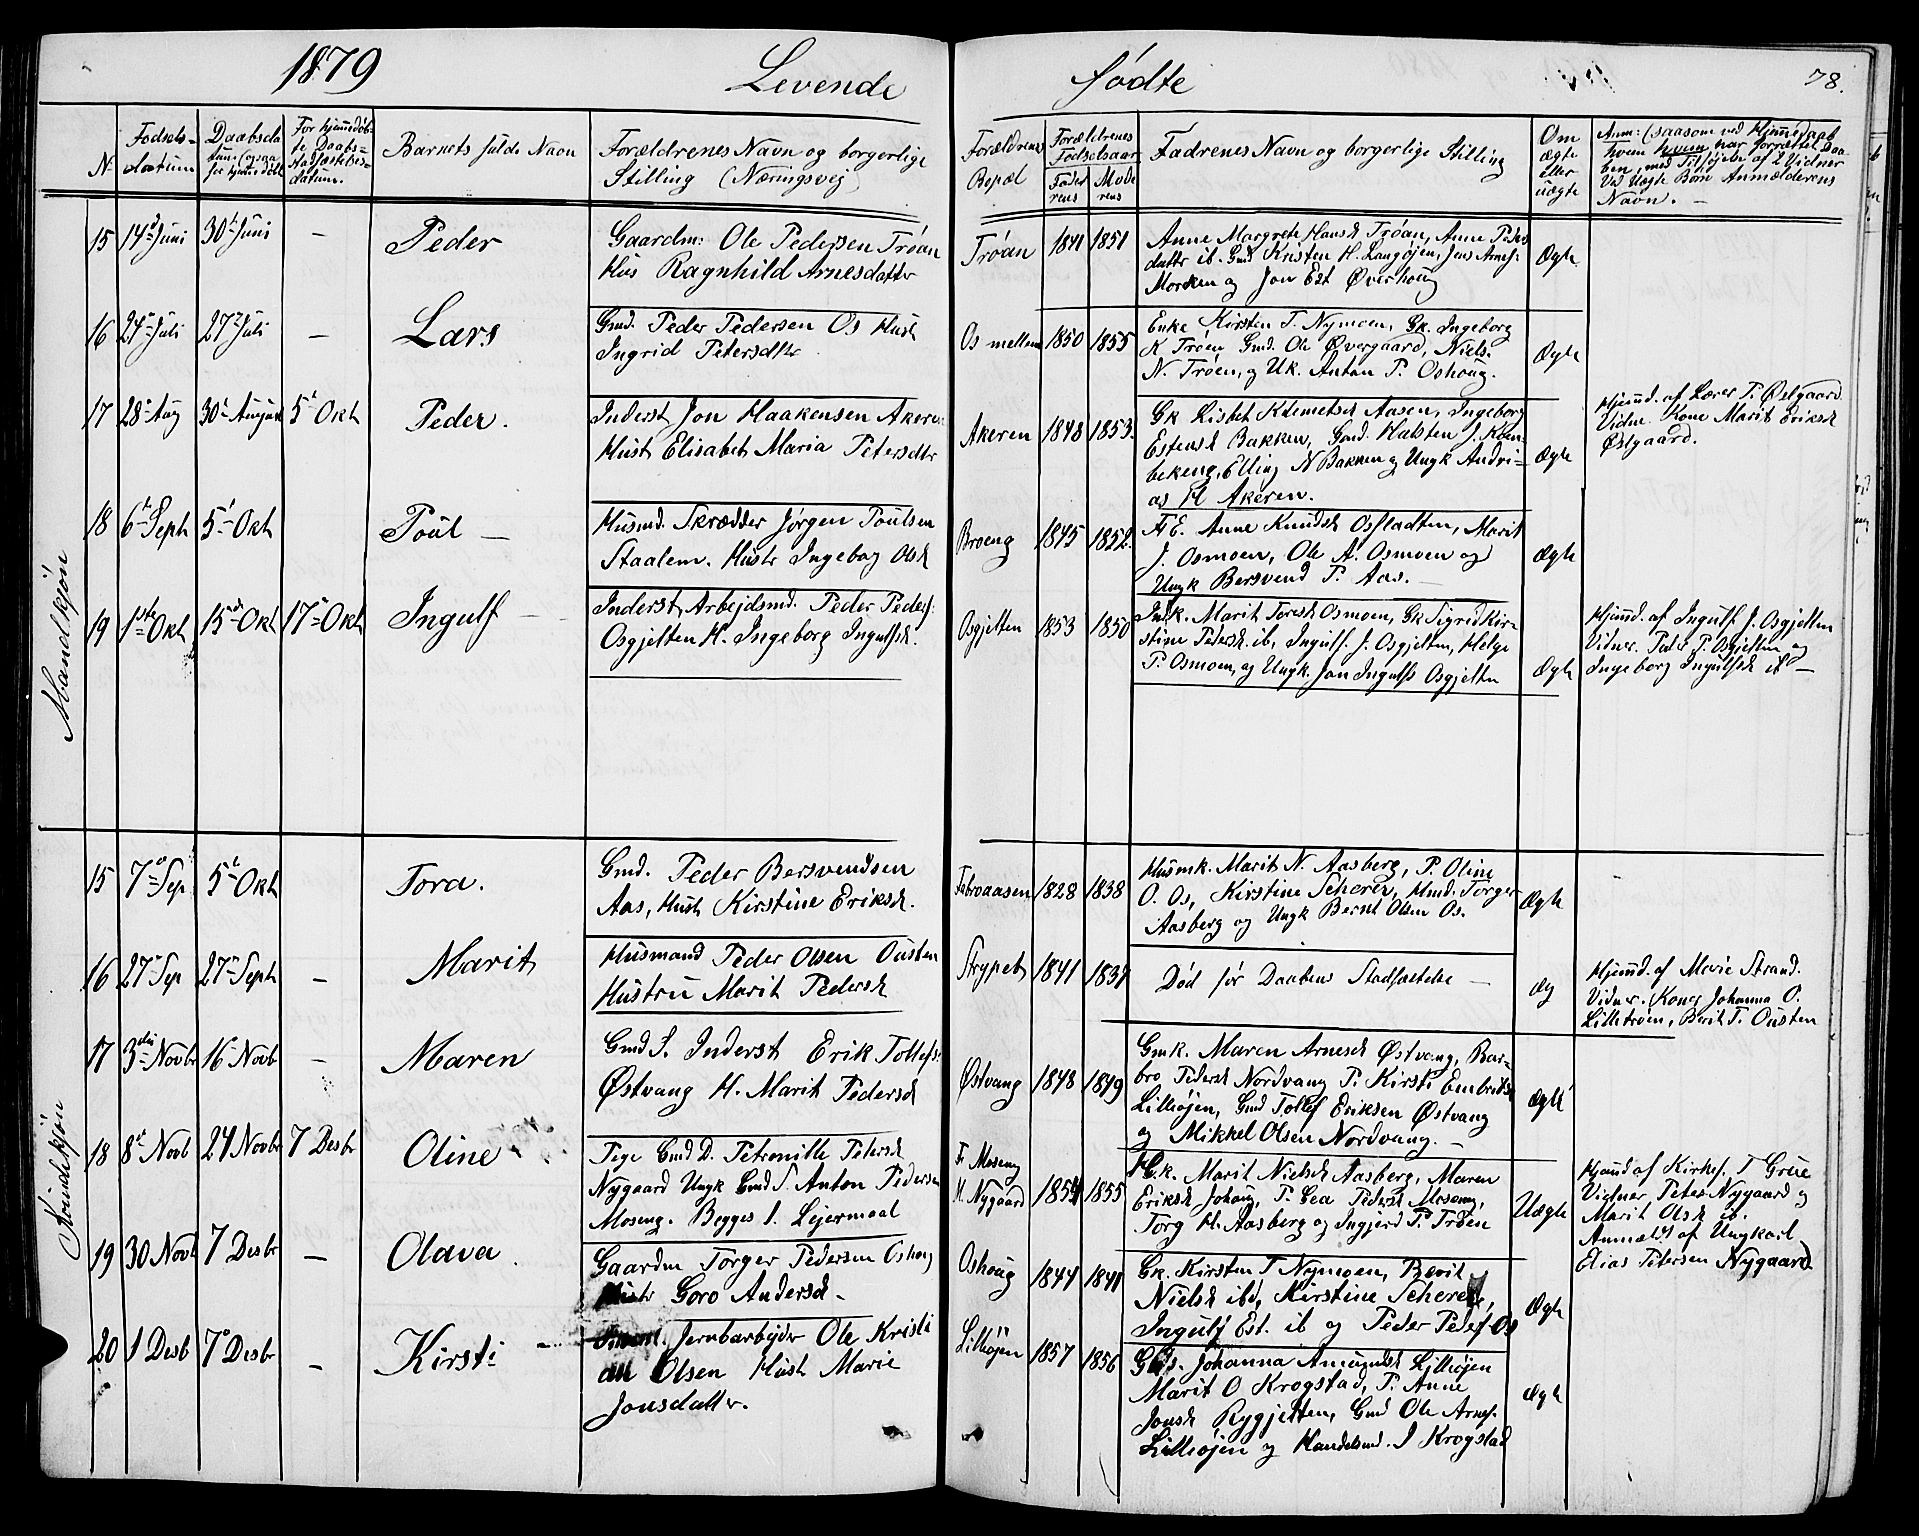 1879 Levende fødte 78.
N Fødsels- datum
Daabsda tum (ogsaa for hjemmedøbt
For hjemmedøb- te Daabs- Stadfæstelses- datum.
Barnets fulde Navn
Forældrenes Navn og borgerlige
Stilling (Næringsvej)
Forældrenes Bopæl
Forældrenes Fødselsaar
Faderens Moderens
Fadrenes Navn og borgerlige Stilling
Om ægte eller uægte
Anm: (saasom ved Hjemmedaab
hvem hvem har forrættet Daa-
ben, med Tilføjelse af 2 Vidner
Ved Uægte Børn Anmælderens
Navn. —
Mandkjøn
15 14de Juni 30te Juni — Peder
Gaardm: Ole Pedersen Trøan
Hus Ragnhild Arnesdatter
Trøan 1841 1851
Anne Margrete Hansd Trøan, Anne Peders
datter ib. Gmd Kristen H. Langøjen, Jens Arnes:
Morken og Jon Est Øverhoug
Ægte
16 24 Juli 27 Juli — Lars
Gmd. Peder Pedersen Os Hust
Ingrid Petersdtr
Os mellem 1850 1855
Enke Kirsten T. Nymoen, Gk. Ingeborg
K Trøen Gmd. Ole Øvergaard, Niels
N. Trøen, og Uk. Anton P. Oshoug.
Ægte
17 28 Aug 30te August 5te Okt Peder.
Inderst Jon Haakensen Akeren
Hust Elisabet Maria Petersdtr
Akeren 1848 1853.
Gk Lisbet Klemetsd Aasen, Ingeborg
Estensd Bakken, Gmd. Halsten J. Koen-
bekeng, Elling N Bakken og Ungk Andri-
as H Akeren.
Ægte
Hjemd. af Lærer P. Østgaard
Vidne Kone Marit Eriksd
Østgaard.
18 6te Sept 5te Okt Poul —
Husmd. Skrædder Jørgen Poulsen
Staalem. Hustr Ingebog Olsd
Broeng 1845 1852.
Anne Knudsd Osfladten, Marit
J. Osmoen, Ole A. Osmoen og
Ungk Bersvend P. Aas. —
Ægte
19 1ste Okt 15de Okt 17 Okt Ingulf —
Inderst, Arbejdsmd. Peder Peders:
Osgjelten H. Ingeborg Ingulfsd.
Osgjelten 1853 1850
Indk. Marit Toresd Osmoen, Gk Sigrid Kir-
stine Pedersd ib, Ingulf. J. Osgjelten, Helge
P. Osmoen, og Ungk. Jon Ingulfs Osgjelten
Ægte
Hjemd. af Ingulf J. Osgjelten
Vidner. Peder P. Osgjelten og
Ingeborg Ingulfsd ibd —
Kvindekjøn
15 7de Sep 5te Okt Tora.
Gmd. Peder Bersvendsen
Aas, Hust Kirstine Eriksd.
1828 1838
Husmk. Marit N. Aasberg, P. Oline
O. Os, Kirstine Scherer, Hmd. Torger
Aasberg og Ungk Bernt Olsen Os.
Ægte
16 27 Sep 27 Septr — Marit
Husmand Peder Olsen Ousten
Hustru Marit Pedersd
Strypet 1841 1837
Død før Daabens Stadfæstelse —
æg
Hjemd. af Marie Strand.
Vidner. Koner Johanna O.
Lilletrøen, Berit T. Ousten
17 3die Novbr 16 Novb — Maren
Gmd S. Inderst Erik Tollefs:
Østvang H. Marit Pedersd
Østvang 1848 1849
Gmk. Maren Arnesd Østvang, Bar-
bro Pedersd Nordvang P. Kirsti Embriksd
Lilleøjen, Gmd Tollef Eriksen Østvang
og Mikkel Olsen Nordvang. —
ægte
18 8de Novb 24 Novbr 7 Desbr Oline
Pige Gmd D. Petronille Petersd
Nygaard Ungk Gmd S. Anton Pedersen
Moseng. Begges 1. Lejermaal
F. Moseng
M. Nygaard 1854 1855
Gk. Marit Nielsd Aasberg, Maren
Eriksd Johoug, P. Lea Pedersd Moseng,
Torg H. Aasberg og Ingjerd P. Trøen
Uægte
Hjemd af Kirkes. T Grue
Vidner, Peter Nygaard og
Marit Olsd ib.
Anmældt af Ungkarl
Elias Petersen Nygaard
19 30 Novb 7 Desbr — Olava.
Gaardm Torger Pedersen Oshoug
Hustr Goro Andersd. —
Oshoug 1844 1841
Gk. Kirsten T Nymoen, Berit
Nielsd ibd, Kirstine Scherer,
Ingulf Est. ib og Peder Peders Os
Ægte
20 1 Desb 7de Desbr — Kirsti —
Jernbarbejder Ole Kristi
an Olsen Hust Marie
Jonsdatter.
Lilleøjen 1857 1856
Johanna Amundsd Lilleøjen
Marit O Krogstad, P. Anne
Jonsd Rygjelten, Gmd Ole Arnes.
Lilleøjen og Handelsmd. J Krogstad
Ægte